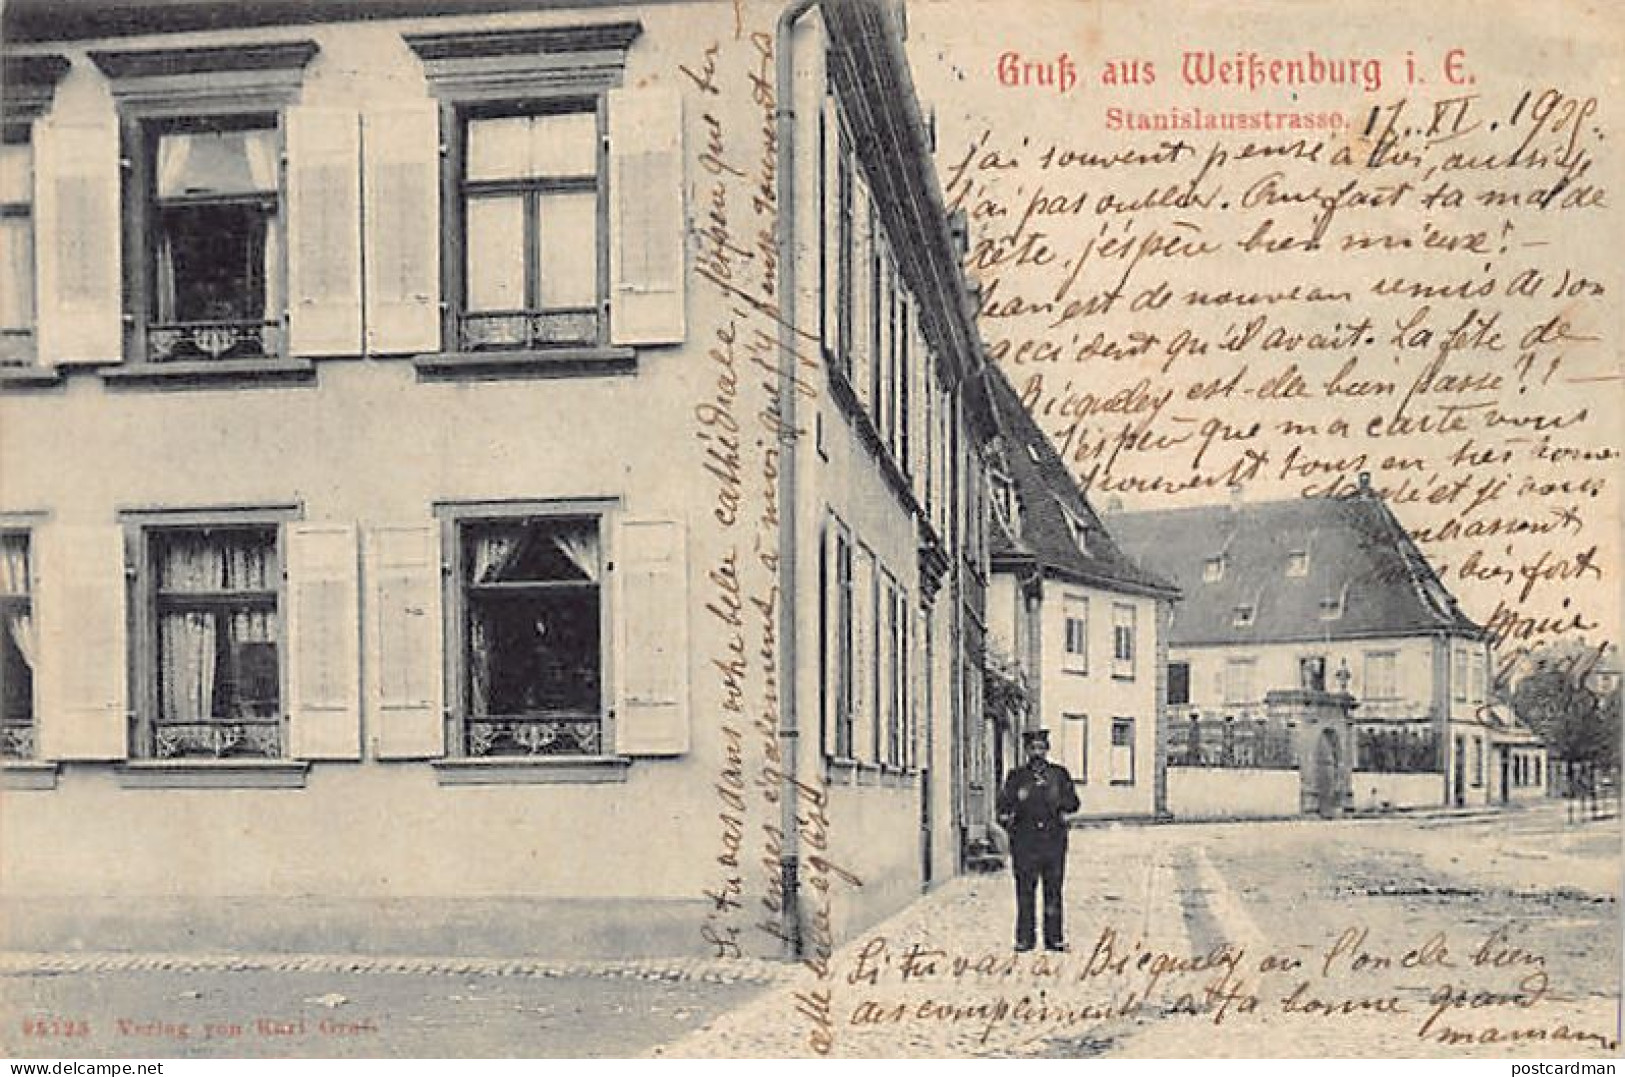 Gruß aus Weißenburg i. E.
Stanislausstrasse.
17. XI. 1905.
j'ai souvent pensé à toi, aussi je
t'ai pas oublier. Que fait ta mal de
tête, j'éspèu bien mieux! -
Jean est de nouveau remis de son
accident qu'il avait. La fête de
Bicqueley est-elle bien passé!! -
J'éspèu que ma carte vous
trouvent tous en très bonne
Santé et je vous
embrassent
très bien fort
Marie
Si tu vas à Bicqueley où l'oncle bien
des compliments et ta bonne grand
maman.
Si tu vas dans notre belle cathédrale, j'éspèu que tu
penses également à moi que j'y pense souvent à
cette belle église
25725 Verlag von Karl Graf.
postcardman